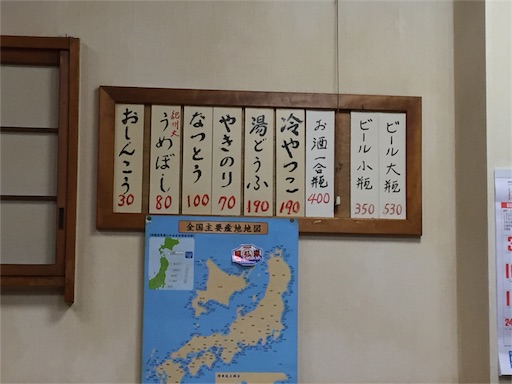 ビール大瓶 530
ビール小瓶 350
お酒一合瓶 400
冷やっこ 190
湯どうふ 190
やきのり 70
なっとう 100
紀州大
うめぼし 80
おしんこう 30
全国主要産地地図